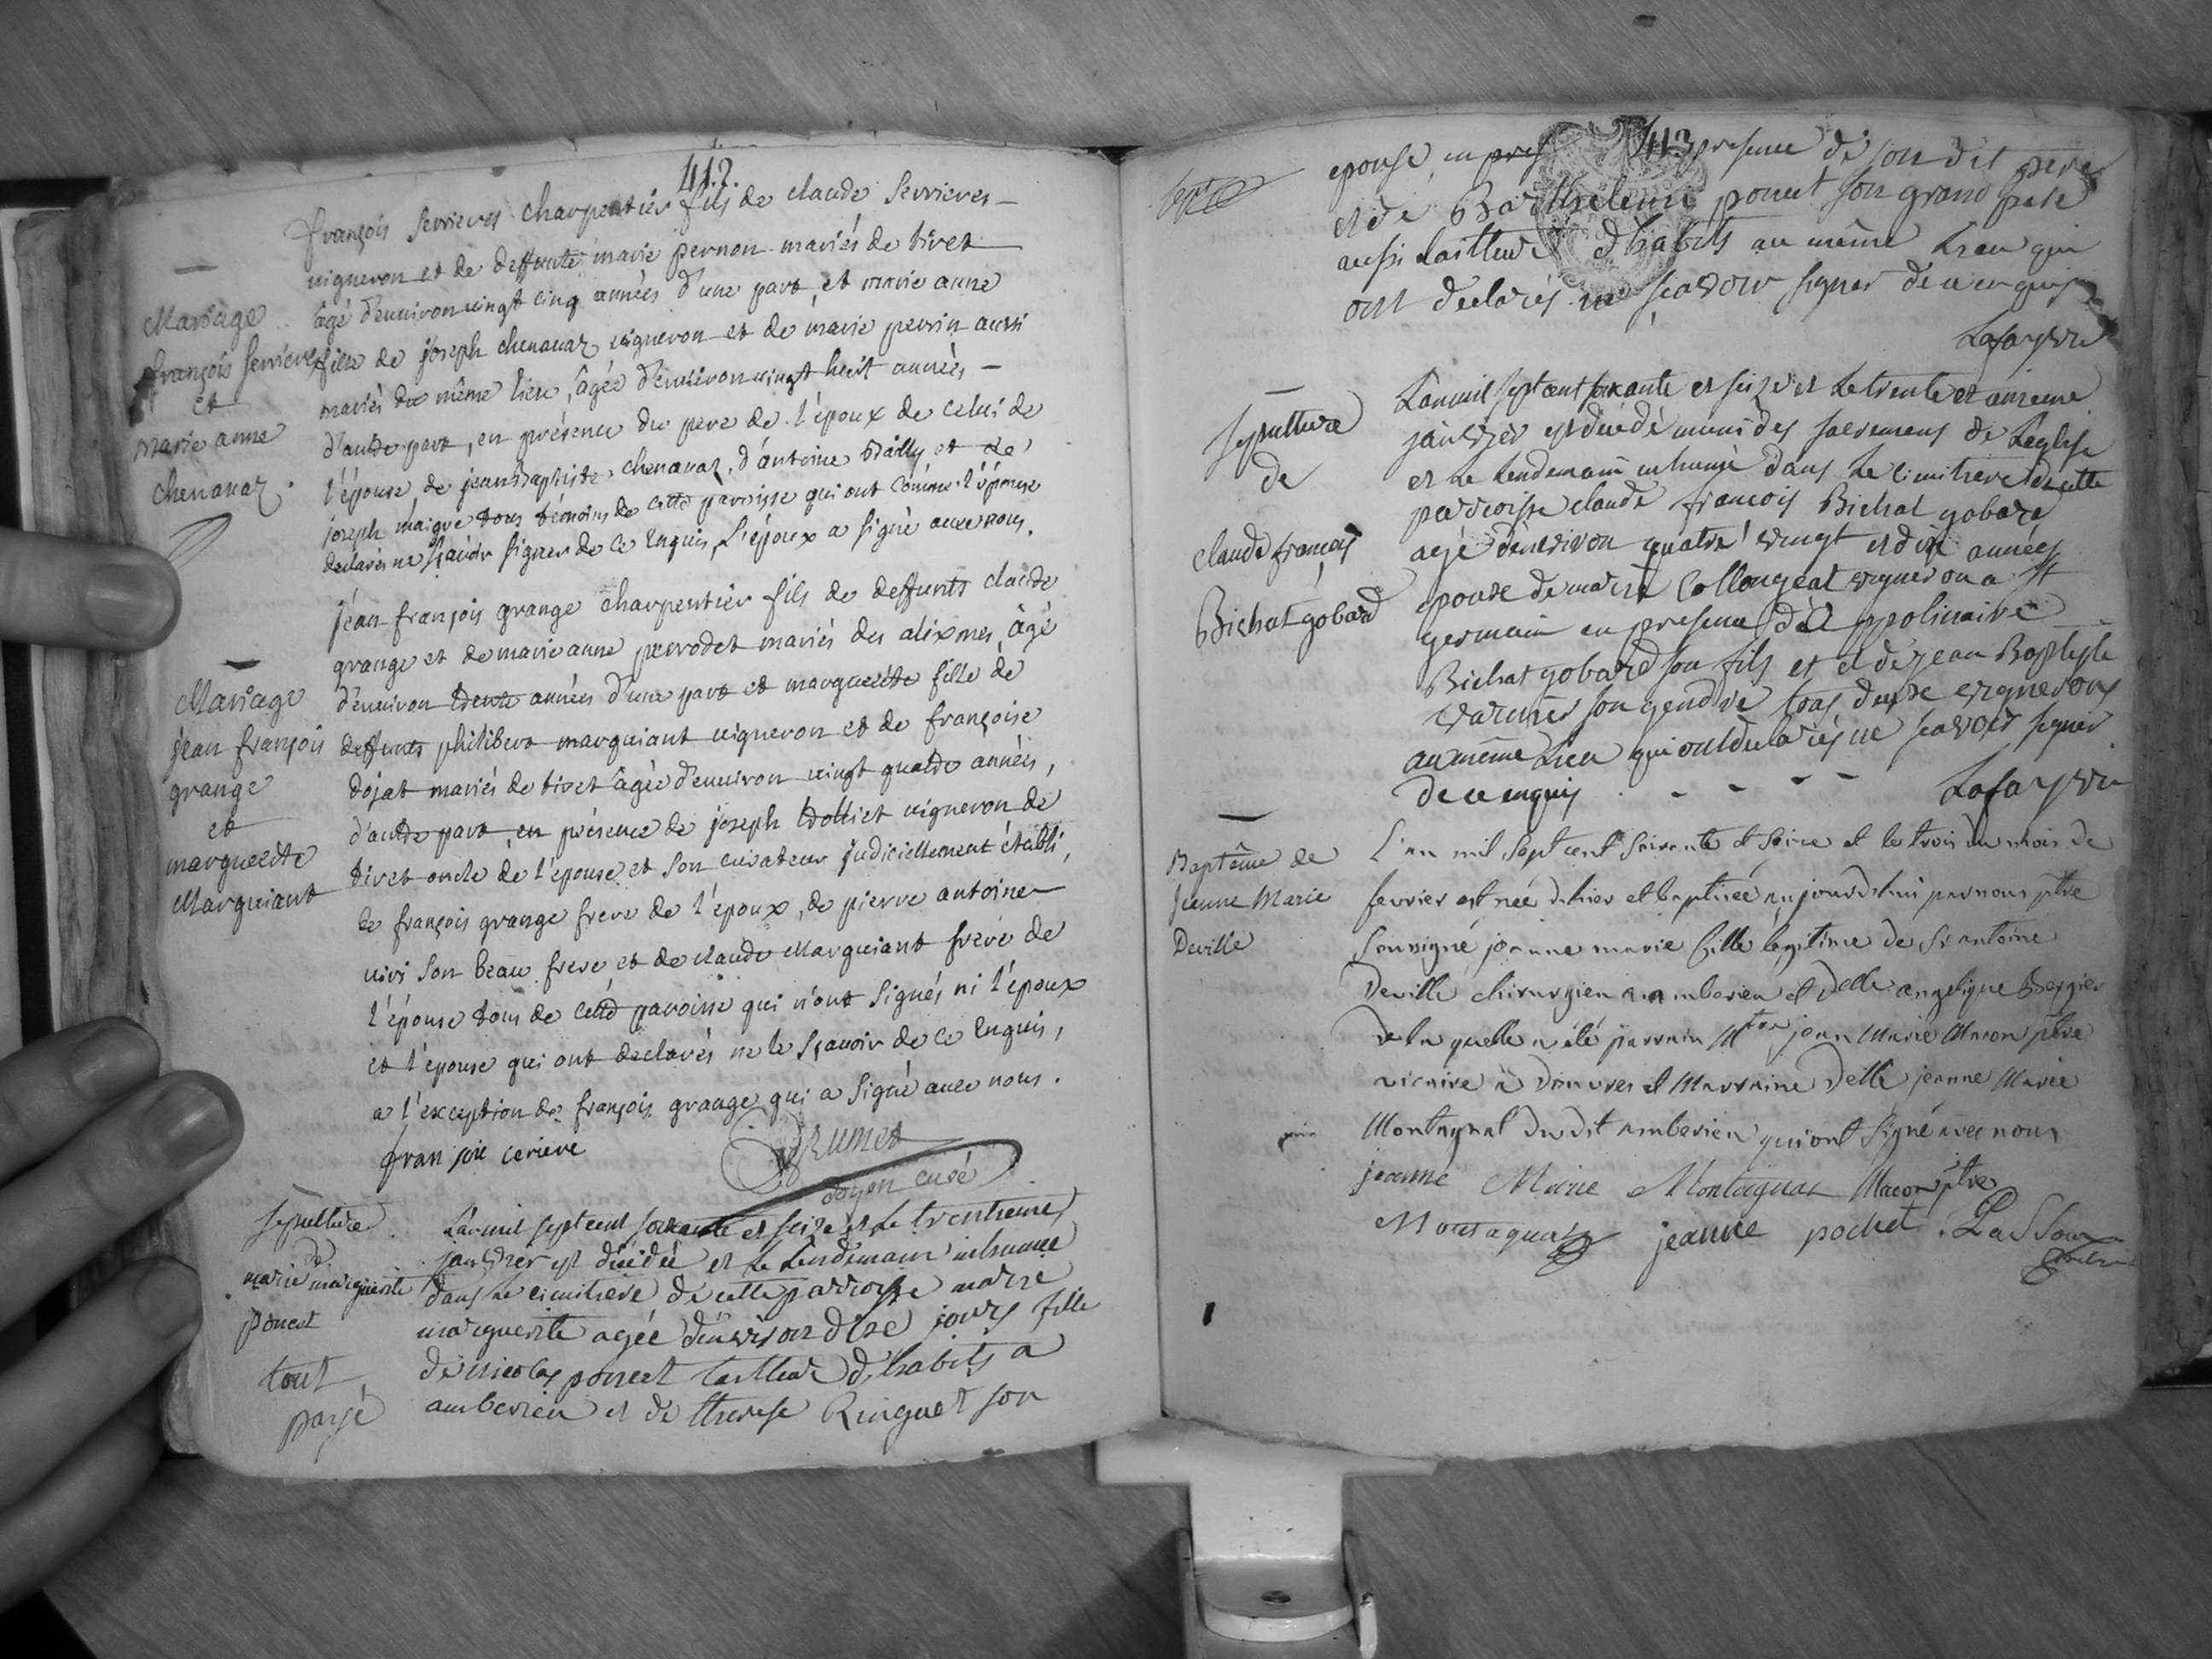 412.
françois serrieres charpentier fils de claude serrieres —
vigneron et de deffunte marie pernon mariés de tiret
âgé d'environ vingt cinq années d'une part, et marie anne
fille de joseph chenavaz vigneron et de marie perrin aussi
mariés du même lieu, âgée d'environ vingt huit années —
d'autre part, en présence du pere de l'époux de celui de
l'épouse, de jean baptiste chenavaz, d'antoine Bailly et de
joseph maigre tous témoins de cette paroisse qui ont comme l'épouse
declarés ne sçavoir signer de ce enquis, l'époux a signé avec nous.
Mariage
françois serrieres
et
marie anne
chenavaz.
jean françois grange charpentier fils de deffunts claude
grange et de marie anne perrodet mariés des alixmes âgé
d'environ trente années d'une part et marguerite fille de
deffunts philibert marguiant vigneron et de françoise
dojat mariés de tiret âgée d'environ vingt quatre années,
d'autre part, en présence de joseph vigneron de
tiret oncle de l'épouse et son curateur judiciellement établi,
de françois grange frere de l'époux, de pierre antoine
son beau frere, et de claude Marguiant frere de
l'épouse tous de cette paroisse qui n'ont signés ni l'époux
et l'épouse qui ont declarés ne le sçavoir de ce enquis,
a l'exception de françois grange qui a signé avec nous.
Mariage
jean françois
grange
et
marguerite
Marguiant
fran soi ceriere
Brumet
doyen curé
sepulture
de
marie marguerite
poncet
tout
payé
L'an mil sept cent soixante et seize et le trentieme
janvier est décédée et le lendemain inhumée
dans le cimitiere de cette parroisse marie
marguerite agée d'environ dixe jours fille
de nicolas poncet tailleur d'habits a
amberieu et de therese Ringuet son
413
epouse, en pres presence de son dit pere
et de Barthelemi poncet son grand pere
aussi tailleur d'habits au même lieu qui
ont declarés ne scavoir signer de ce enquis
Lafay vic
sepulture
de
claude françois
Bichat gobard
L'an mil sept cent soixante et seize et le trente et unieme
janvier est décédé muni des sacremens de L'eglise
et le lendemain inhumé dans le cimitiere de cette
parroisse claude francois Bichat gobard
agé d'environ quatre vingt et dix années
epoux de marie Collongeat vigneron a St
germain en presence d'Appolinaire
Bichat gobard son fils et de jean Baptiste
varinier son gendre tous deux vignerons
au même Lieu qui ont declarés ne scavoir signer
de ce enquis - - - Lafay vic
Baptême de
Jeanne Marie
Deville
L'an mil sept cent soixante et seize et le trois du mois de
fevrier est née d'hier et baptisée aujourd'hui par nous ptre
soussigné jeanne marie fille legitime de Sr antoine
Deville chirurgien a amberieu et delle angelique Bergier
de laquelle a été parrain jean Marie Macon ptre
vicaire à et Marraine Delle jeanne Marie
Montagnat dudit amberieu qui ont signé avec nous
jeanne Marie Montagnat Macon ptre
Montagnat jeanne pochet.